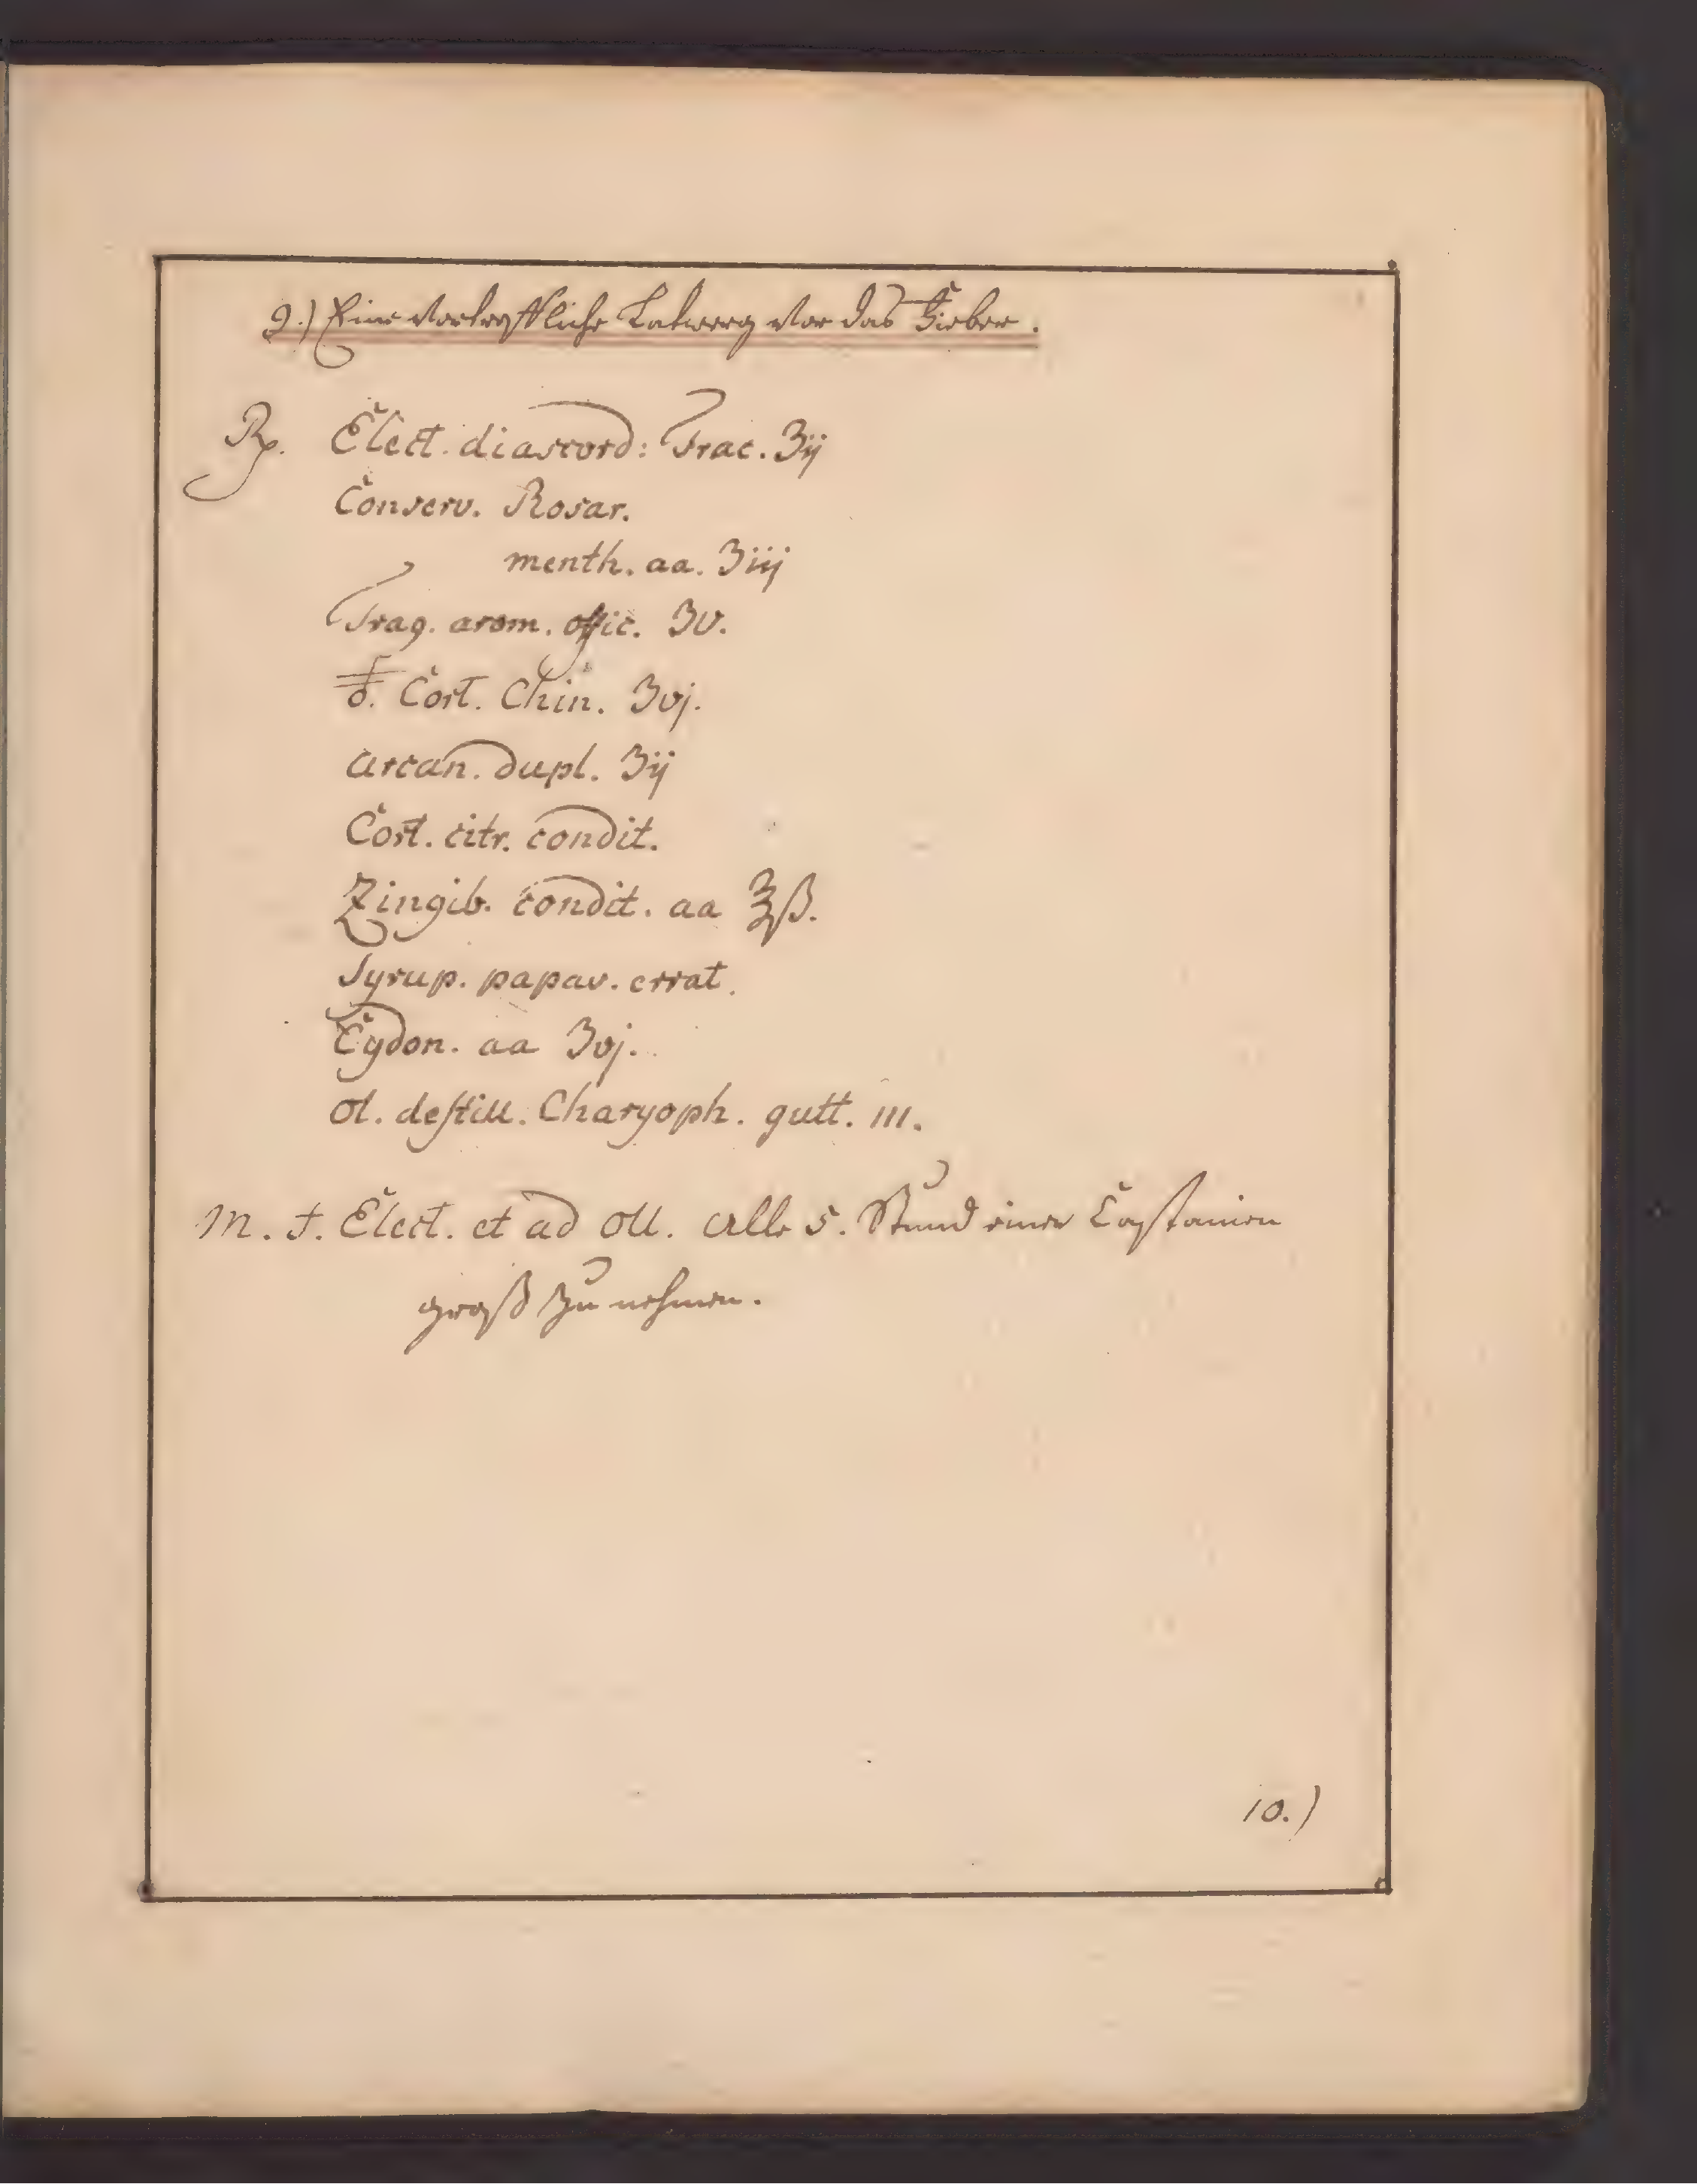 9.) Eine Vortreffliche Latwerg Vor das Fieber.
Rp. Elect. diascord: Frac. ʒij
Conserv. Rosar.
menth. aa. ʒiij
Trag. arom. offic. ʒv.
Cort. Chin. ʒvj.
Arcan. dupl. ʒij
Cort. citr. condit.
Zingib. condit. aa ℥ß.
Syrup. papav. errat.
Cydon. aa ʒvj.
Ol. destill. Charyoph. gutt. III.
M. f. Elect. et ad Oll. Alle 5. Stund einer Castanien
groß zu nehmen.
10.)